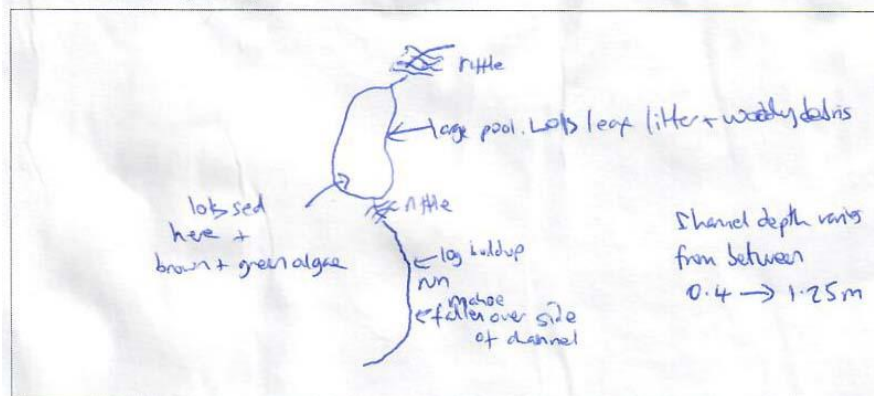 riffle
large pool. Lots leaf litter + woody debris
riffle
lots sed
here +
brown + green algae
log buildup
run
mahoe
fallen over side
of channel
Channel depth varies
from between
0.4 → 1.25m